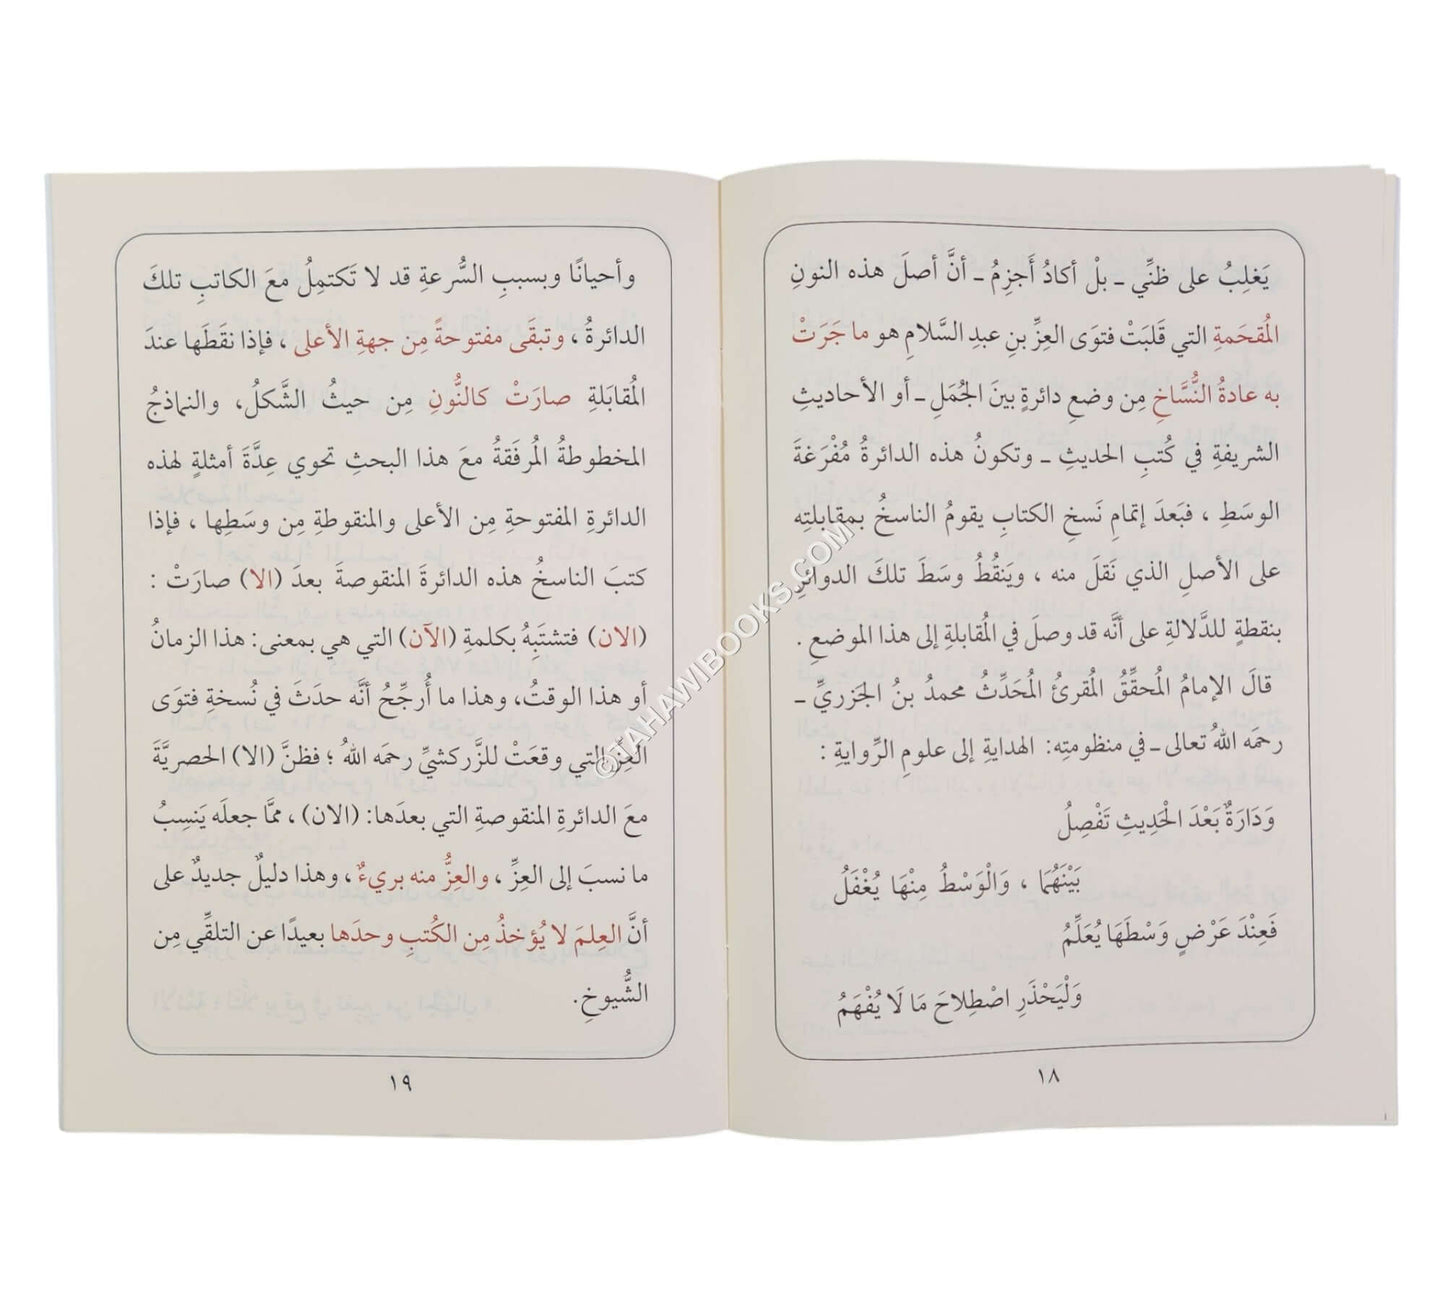 يَغلِبُ على ظنِّي ـ بلْ أكادُ أَجزِمُ ـ أنَّ أصلَ هذه النونِ
المُقحَمةِ التي قَلبَتْ فتوَى العِزِّ بنِ عبدِ السَّلامِ هو ما جَرَتْ
به عادةُ النُّسَّاخِ مِن وضعِ دائرةٍ بينَ الجُمَلِ ـ أو الأحاديثِ
الشريفةِ في كُتبِ الحديثِ ـ وتكونُ هذه الدائرةُ مُفْرَغةَ
الوسَطِ ، فبَعدَ إتمامِ نَسخِ الكتابِ يقومُ الناسخُ بمقابلتِه
على الأصلِ الذي نَقلَ منه ، ويَنقُطُ وسَطَ تلكَ الدوائرِ
بنقطةٍ للدَّلالةِ على أنَّه قد وصلَ في المُقابلةِ إلى هذا الموضعِ .
قالَ الإمامُ المُحقِّقُ المُقرئُ المُحَدِّثُ محمدُ بنُ الجَزريِّ ـ
رحمَه اللهُ تعالى ـ في منظومتِه: الهدايةِ إلى علومِ الرِّوايةِ :
وَدَارَةٌ بَعْدَ الْحَدِيثِ تَفْصِلُ
بَيْنَهُمَا ، وَالْوَسْطُ مِنْهَا يُغْفَلُ
فَعِنْدَ عَرْضٍ وَسْطَهَا يُعَلِّمُ
وَلْيَحْذَرِ اصْطِلاحَ مَا لَا يُفْهَمُ
١٨
وأحيانًا وبسببِ السُّرعةِ قد لا تَكتمِلُ معَ الكاتبِ تلكَ
الدائرةُ ، وتبقَى مفتوحةً مِن جهةِ الأعلى ، فإذا نقَطَها عندَ
المُقابَلةِ صارَتْ كالنُّونِ مِن حيثُ الشَّكلُ، والنماذجُ
المخطوطةُ المُرفَقةُ معَ هذا البحثِ تحوي عِدَّةَ أمثلةٍ لهذه
الدائرةِ المفتوحةِ مِن الأعلى والمنقوطةِ مِن وسَطِها ، فإذا
كتبَ الناسخُ هذه الدائرةَ المنقوصةَ بعدَ (الا) صارَتْ :
(الان) فتشتَبِهُ بكلمةِ (الآن) التي هي بمعنى: هذا الزمانُ
أو هذا الوقتُ، وهذا ما أُرجِّحُ أنَّه حدَثَ في نُسخةِ فتوَى
العِزِّ التي وقعَتْ للزَّركشيِّ رحمَه اللهُ ؛ فظنَّ (الا) الحصريَّةَ
معَ الدائرةِ المنقوصةِ التي بعدَها: (الان) ، ممَّا جعلَه يَنسِبُ
ما نسبَ إلى العِزِّ ، والعِزُّ منه بريءٌ ، وهذا دليلٌ جديدٌ على
أنَّ العِلمَ لا يُؤخذُ مِن الكُتبِ وحدَها بعيدًا عن التلقِّي مِن
الشُّيوخِ.
١٩
©TAHAWIBOOKS.COM